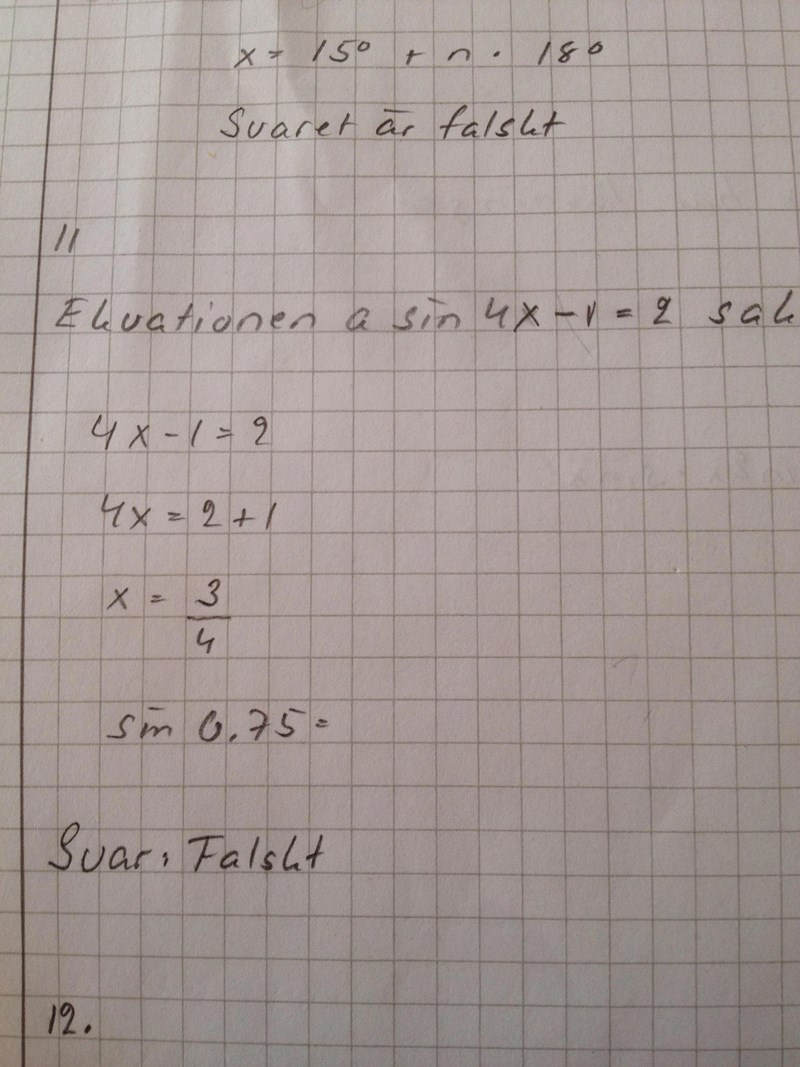 x = 15° + n · 180
Svaret är falskt
11
Ekvationen a sin 4x - 1 = 2 sak
4x - 1 = 2
4x = 2 + 1
x = 3/4
sin 0.75 =
Svar: Falskt
12.